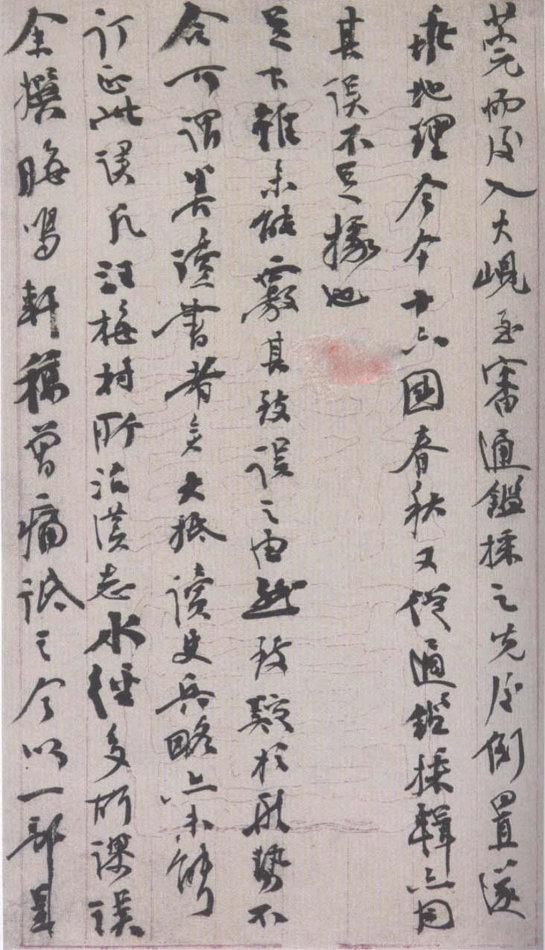 莞而後入大峴審通鑑採之先後倒置遂
乖地理今本十六國春秋又從通鑑採輯亦同
其誤不足據也
足下雖未能覈其致誤之由然致疑於形勢不
合可謂善讀書者矣大抵讀史兵略亦未能
訂正此誤凡汪梅村所治漢志水經多所誤
余撰晦鳴軒稿曾痛詆之今以一部呈